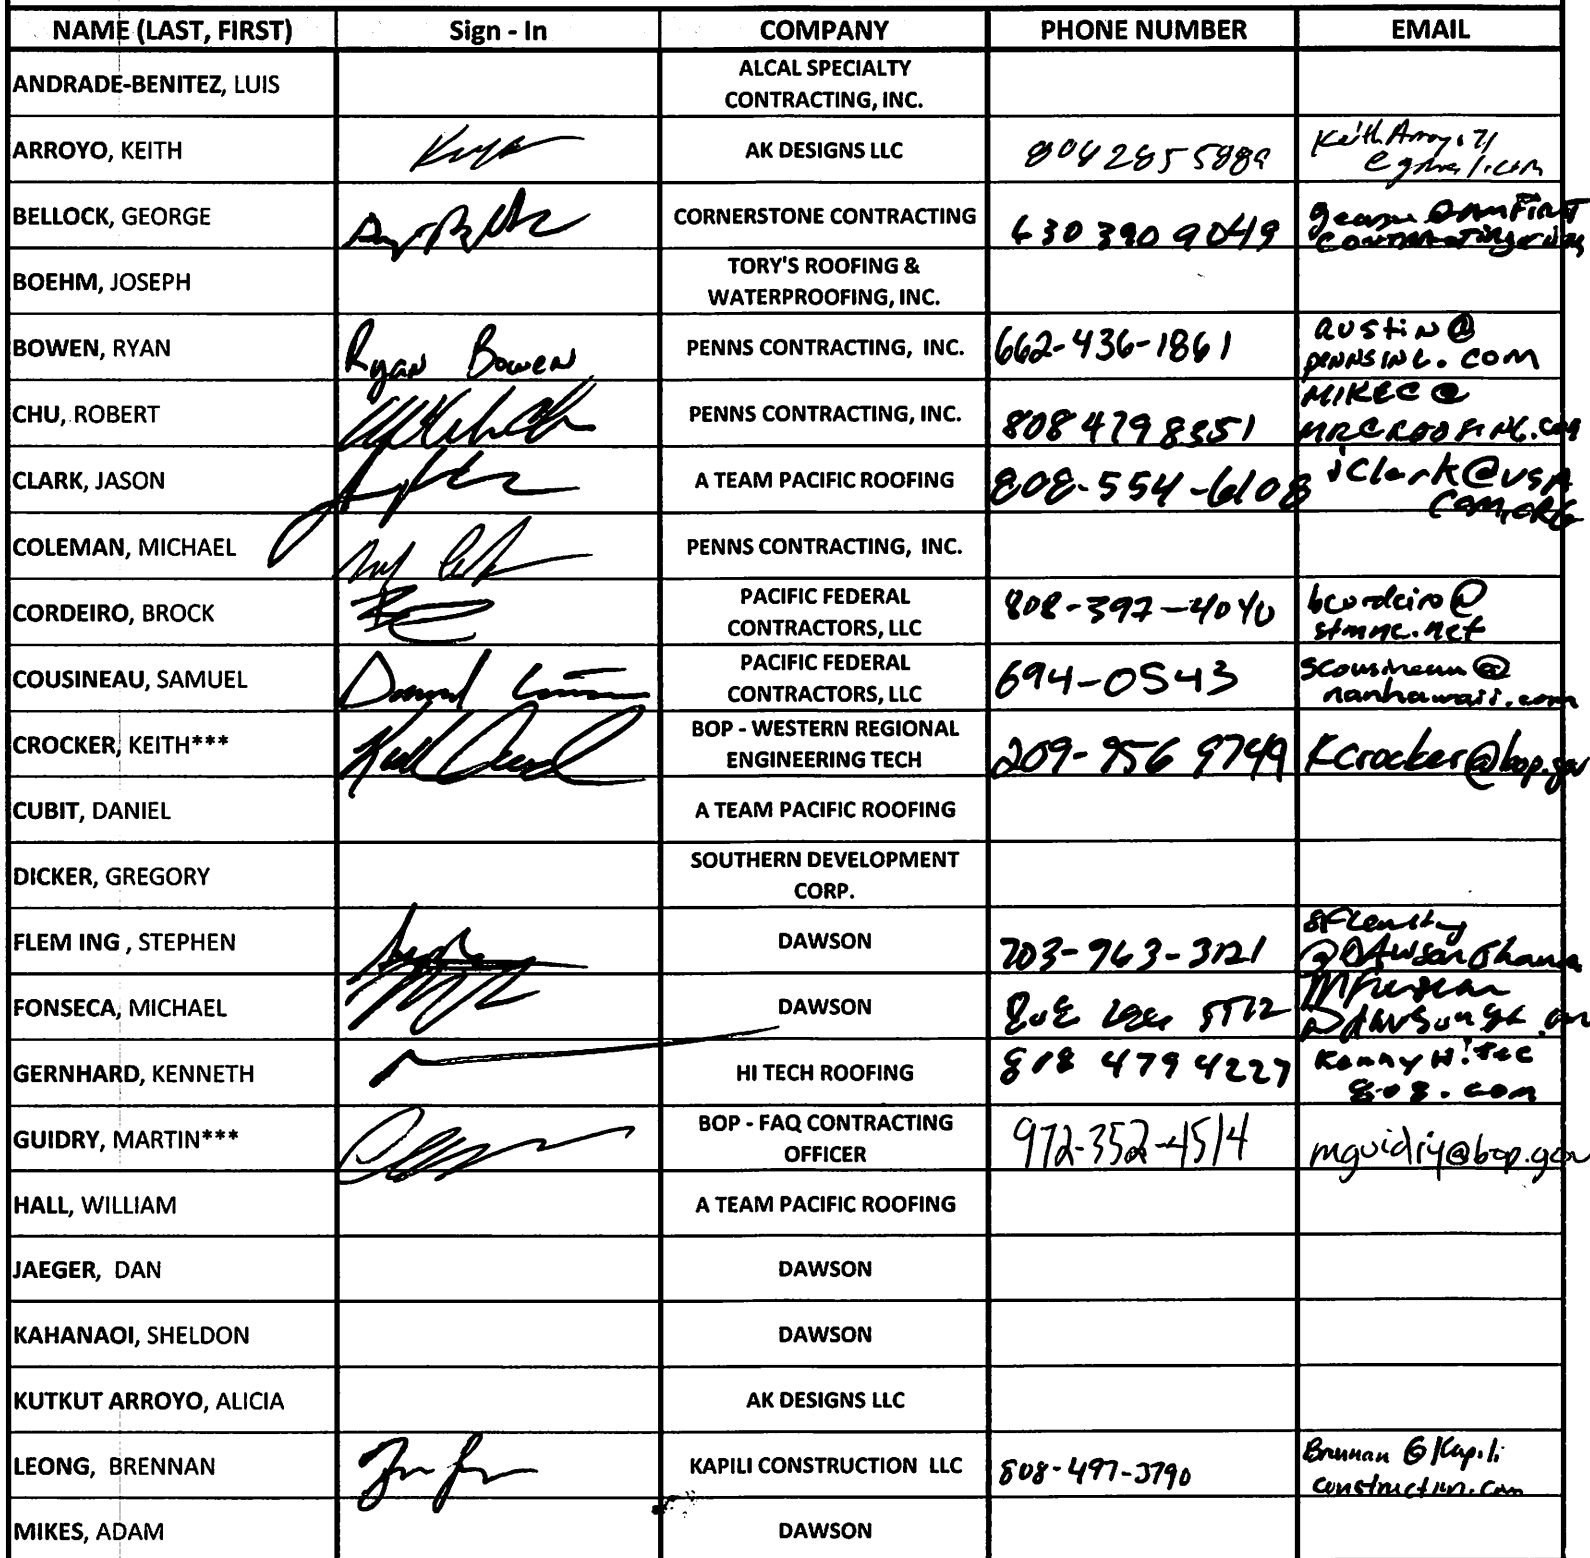 NAME (LAST, FIRST) Sign - In COMPANY PHONE NUMBER EMAIL
ANDRADE-BENITEZ, LUIS ALCAL SPECIALTY
CONTRACTING, INC.
ARROYO, KEITH AK DESIGNS LLC
BELLOCK, GEORGE CORNERSTONE CONTRACTING 630 390 9049
BOEHM, JOSEPH TORY'S ROOFING &
WATERPROOFING, INC.
BOWEN, RYAN Ryan Bowen PENNS CONTRACTING, INC. 662-436-1861 austin@
pennsinc.com
CHU, ROBERT PENNS CONTRACTING, INC. 808 479 8351 MIKEC@
MRCROOFING.com
CLARK, JASON A TEAM PACIFIC ROOFING 808-554-6108 jClark@USA
COLEMAN, MICHAEL PENNS CONTRACTING, INC.
CORDEIRO, BROCK PACIFIC FEDERAL
CONTRACTORS, LLC 808-397-4040 bcordeiro@
COUSINEAU, SAMUEL PACIFIC FEDERAL
CONTRACTORS, LLC 694-0543 scousineau@
nanhawaii.com
CROCKER, KEITH*** BOP - WESTERN REGIONAL
ENGINEERING TECH 209-956 9749 Kcrocker@bop.gov
CUBIT, DANIEL A TEAM PACIFIC ROOFING
DICKER, GREGORY SOUTHERN DEVELOPMENT
CORP.
FLEM ING , STEPHEN DAWSON 703-963-3121
FONSECA, MICHAEL DAWSON
GERNHARD, KENNETH HI TECH ROOFING 808 479 4227 Kenny H!tec
808.com
GUIDRY, MARTIN*** BOP - FAQ CONTRACTING
OFFICER 972-352-4514 mguidry@bop.gov
HALL, WILLIAM A TEAM PACIFIC ROOFING
JAEGER, DAN DAWSON
KAHANAOI, SHELDON DAWSON
KUTKUT ARROYO, ALICIA AK DESIGNS LLC
LEONG, BRENNAN KAPILI CONSTRUCTION LLC 808-497-3790 Brennan @ Kapili
construction.com
MIKES, ADAM DAWSON